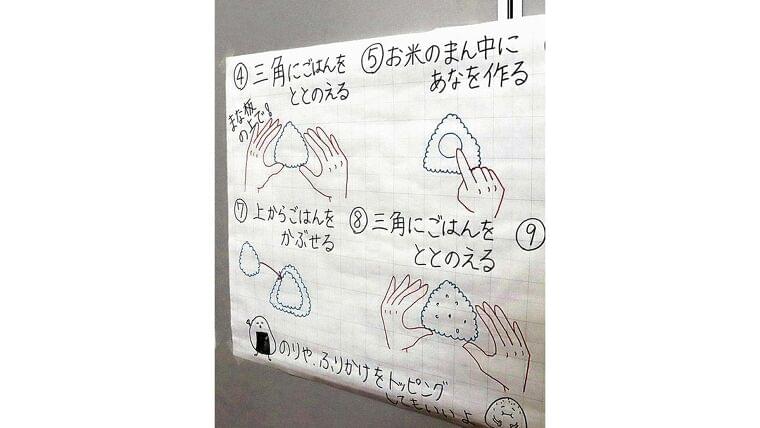 ④三角にごはんを
ととのえる
まな板
の上で!
⑤お米のまん中に
あなを作る
⑦上からごはんを
かぶせる
⑧三角にごはんを
ととのえる
⑨
のりや、ふりかけをトッピング
してもいいよ